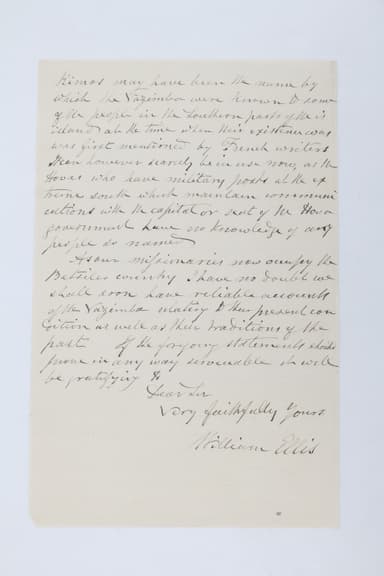 Kimos may have been the name by
which the Vazimba were known to some
of the people in the southern parts of the is
island at the time when their existence was
was first mentioned by French writers
however scarcely be in use now, as the
Hovas who have military posts at the ex
treme south which maintain communi
cations with the capital or seat of the Hova
government have no knowledge of any
people so named
As our missionaries now occupy the
Betsileo country I have no doubt we
shall soon have reliable accounts
of the Vazimba relating to their present con
dition as well as their traditions of the
past. If the forgoing statements should
prove in any way serviceable it will
be gratifying to
Dear Sir
Very faithfully Yours
William Ellis